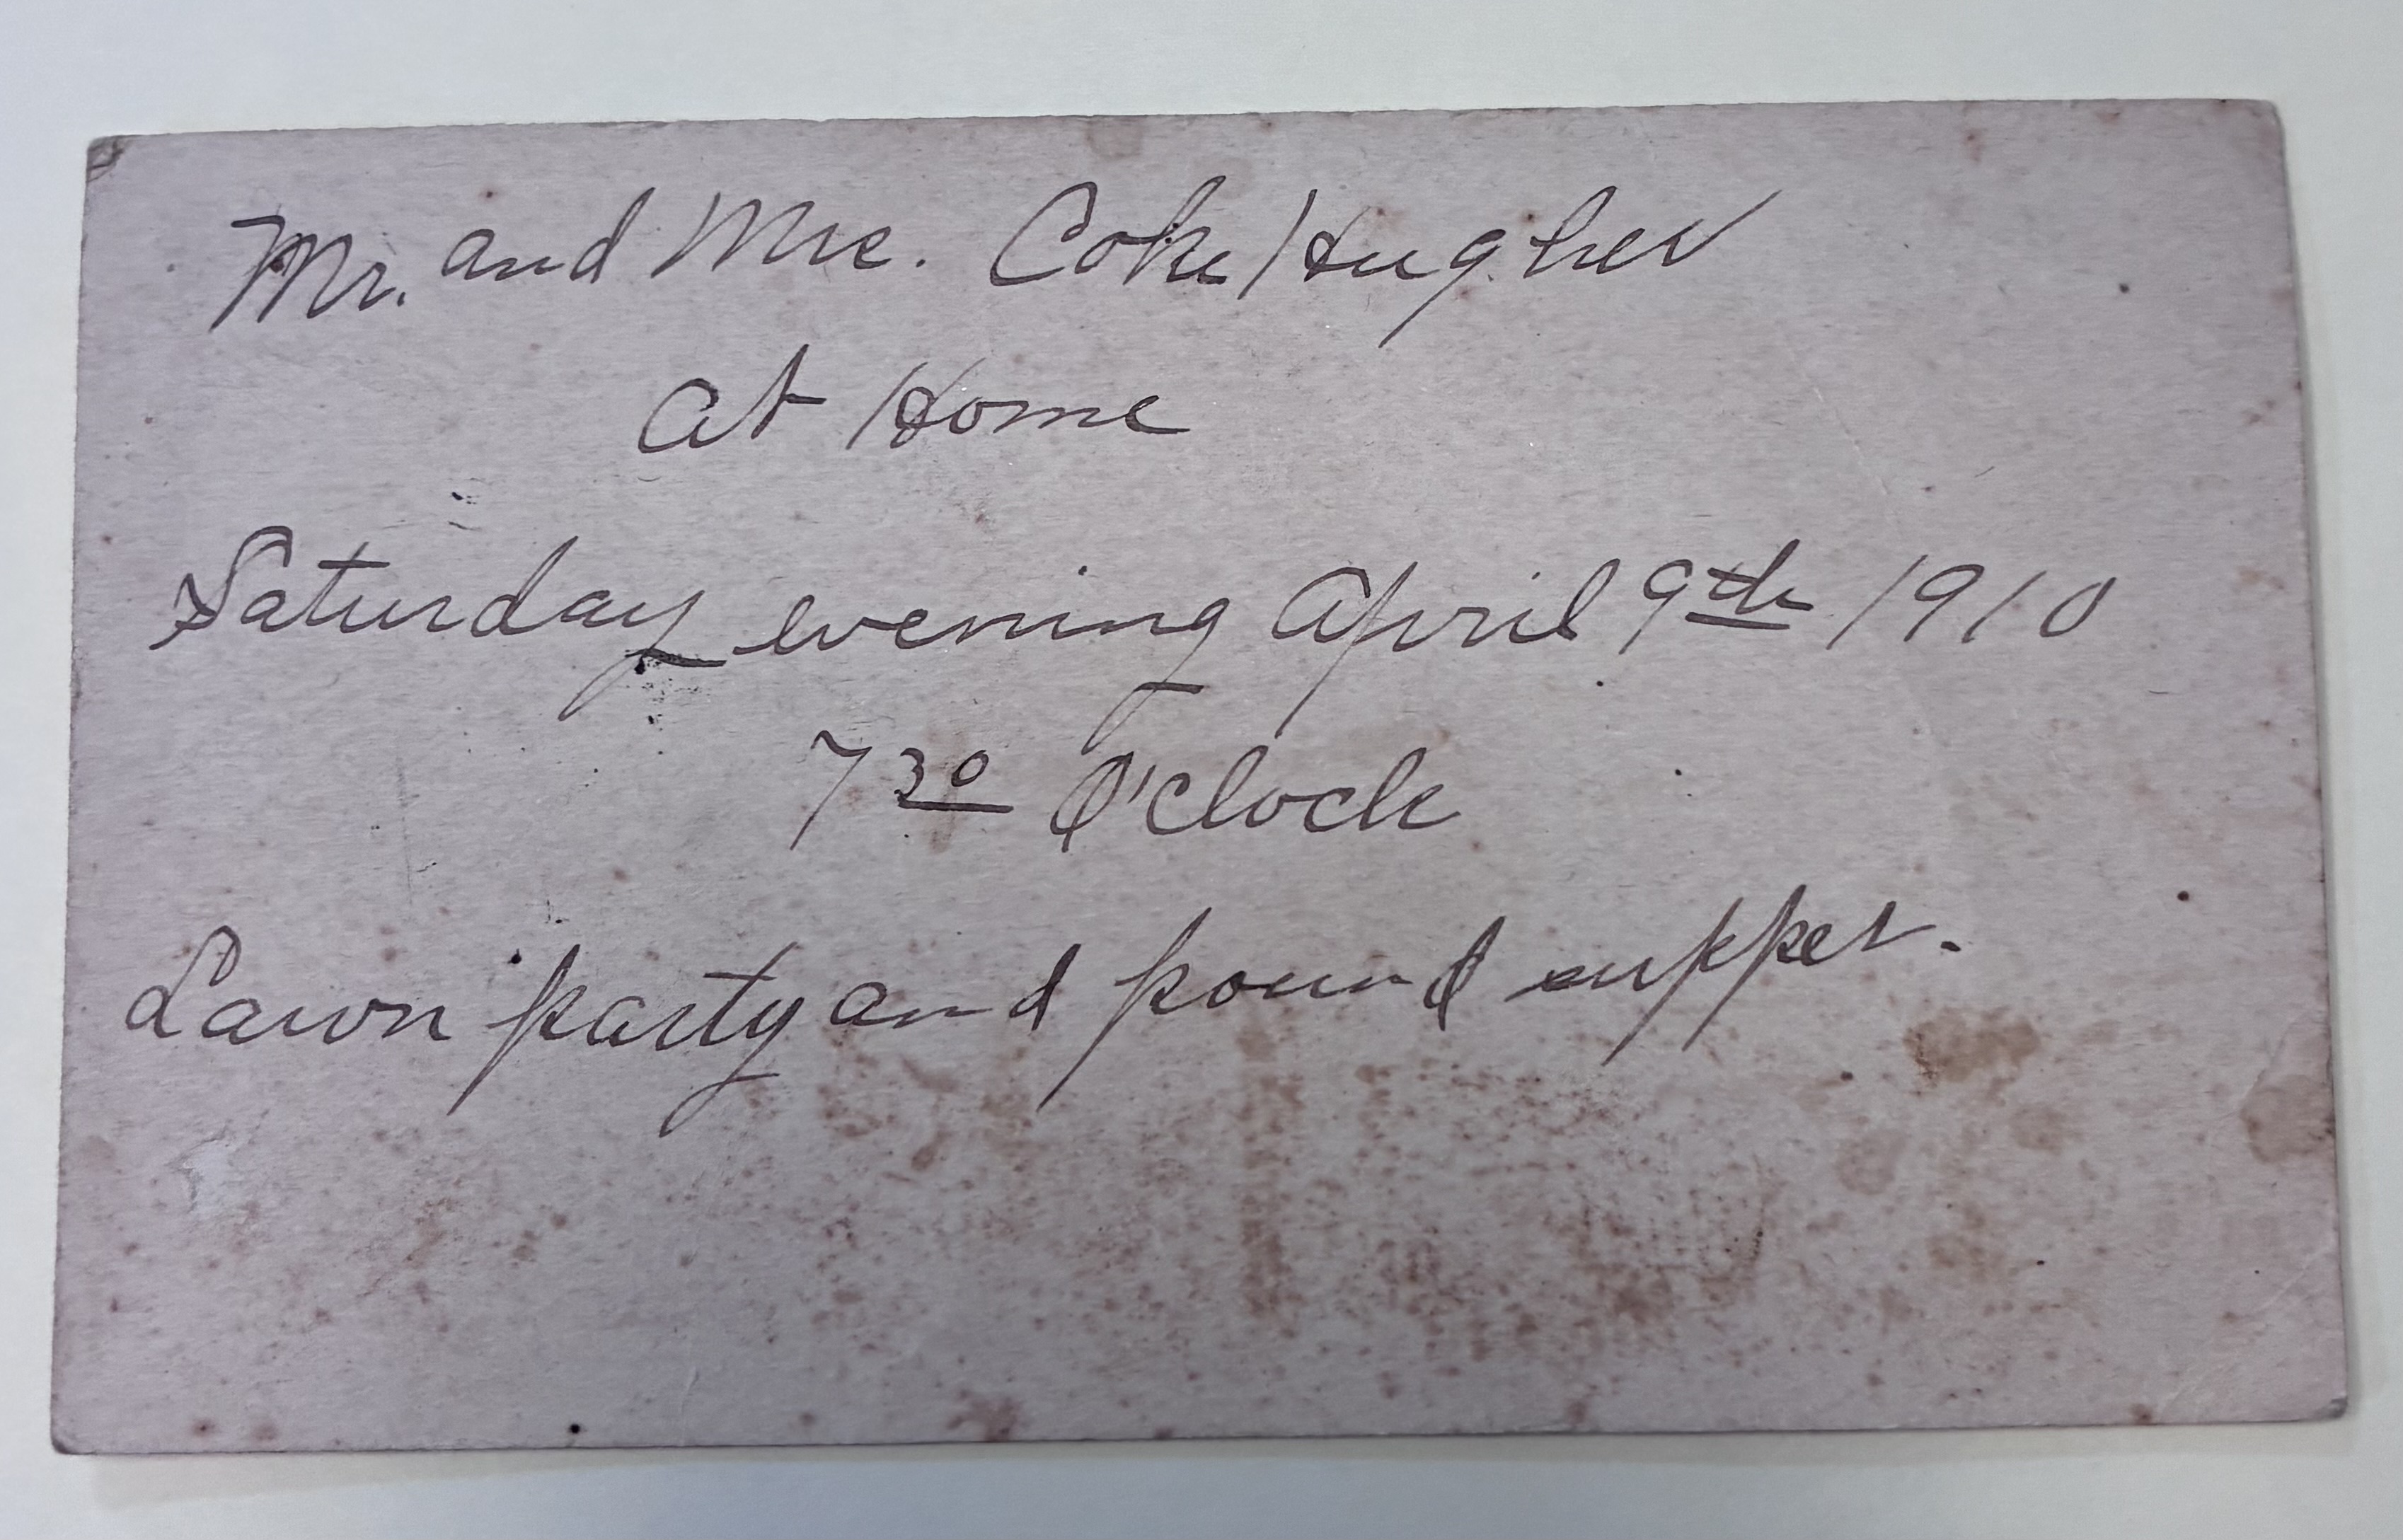 Mr. and Mrs. Coke Hughes
At Home
Saturday evening April 9th 1910
7 30 O'clock
Lawn party and pound supper.